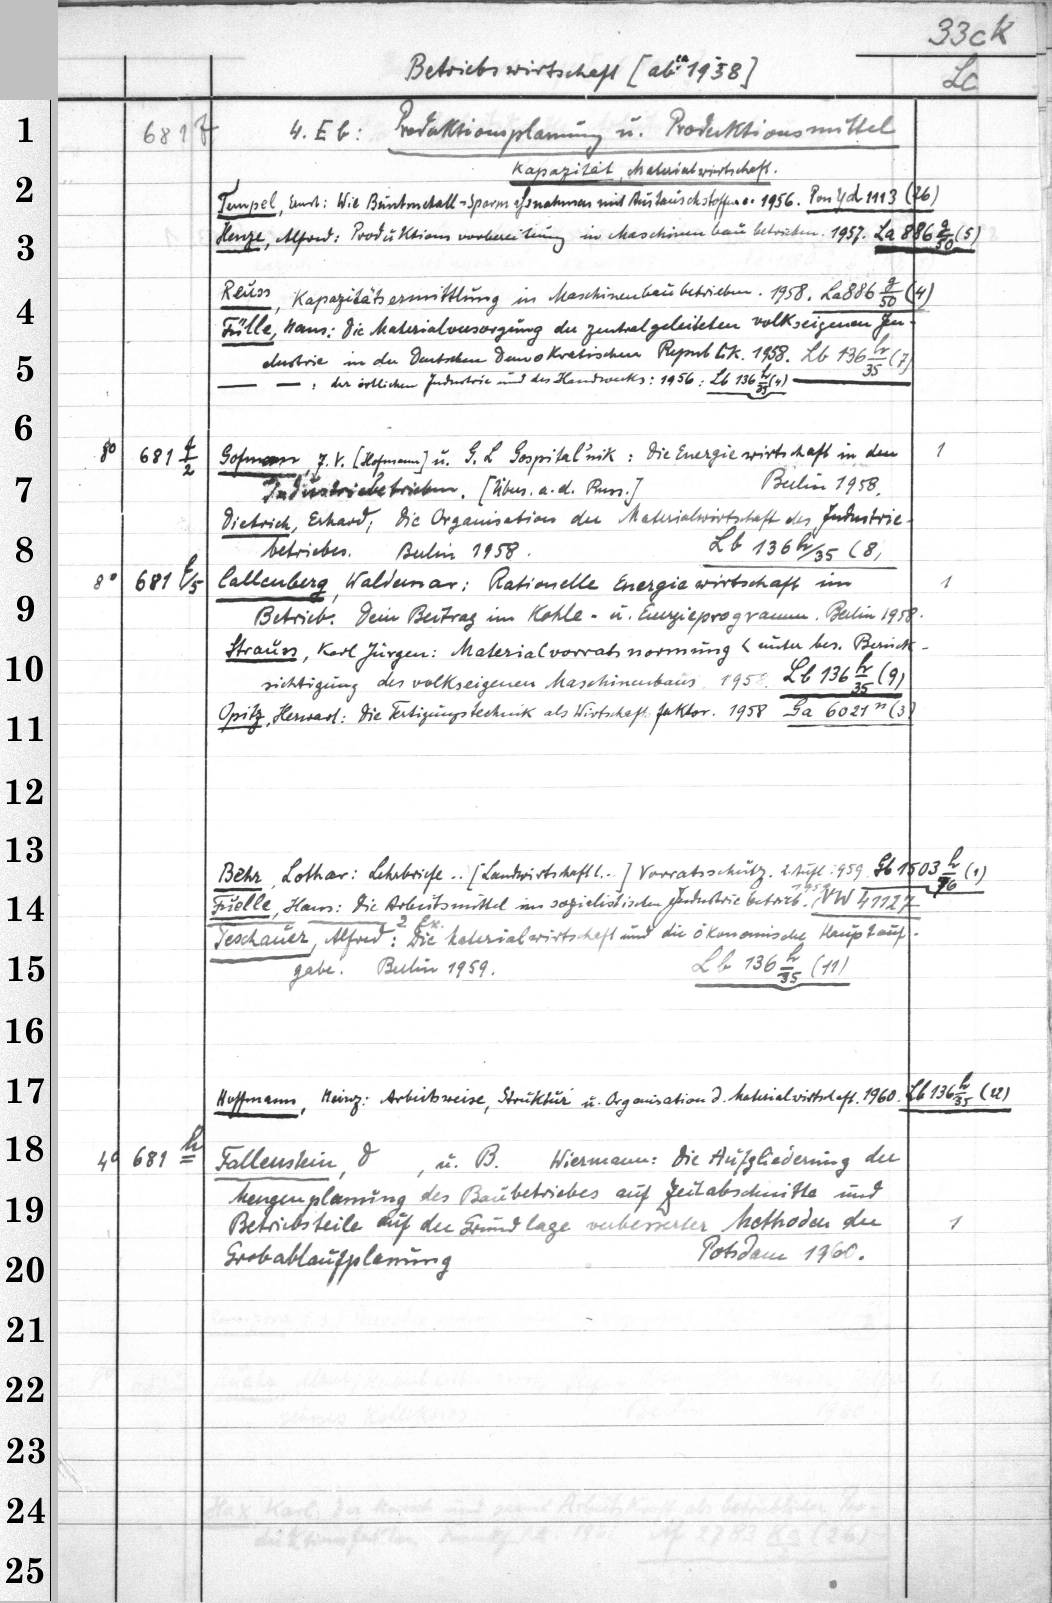 33cK
Betriebswirtschaft [ab ca 1958]
Lc
1 681 f 4. E b: Produktionsplanung u. Produktionsmittel
Kapazität, Materialwirtschaft.
2 Tempel, Ernst: Wie Buntmetall-Sparmaßnahmen mit Austauschstoffen .. 1956. Pon Yd 1113 (26)
3 Henze, Alfred: Produktionsvorbereitung in Maschinenbaubetrieben. 1957. La 886 g/50 (5)
Reuss, Kapazitätsermittlung in Maschinenbaubetrieben. 1958. La 886 g/50 (4)
4 Fülle, Hans: Die Materialversorgung der zentralgeleiteten volkseigenen In-
5 dustrie in der Deutschen Demokratischen Republik. 1958. Lb 136 h/35 (7)
— — : der örtlichen Industrie und des Handwerks: 1956: Lb 136 h/35 (4)
6
8° 681 f/2 Gofman, J. V. [Hofmann] u. G. L Gospital'nik: Die Energiewirtschaft in den 1
7 Industriebetrieben. [Übers. a. d. Russ.] Berlin 1958.
Dietrich, Erhard; Die Organisation der Materialwirtschaft des Industrie-
8 betriebes. Berlin 1958. Lb 136 h/35 (8)
8° 681 f/5 Callenberg, Waldemar: Rationelle Energiewirtschaft im 1
9 Betrieb. Dein Beitrag im Kohle- u. Energieprogramm. Berlin 1958.
Strauss, Karl Jürgen: Materialvorratsnormung < unter bes. Berück-
10 sichtigung des volkseigenen Maschinenbaus 1958. Lb 136 h/35 (9)
11 Opitz, Herwart: Die Fertigungstechnik als Wirtschaft. faktor. 1958 Ga 6021 n (3)
12
13
Behr, Lothar: Lehrbriefe .. [Landwirtschaftl. ..] Vorratsschutz. 2. Aufl. 959. Gb 1503 h/76 (1)
14 Fuelle, Hans: Die Arbeitsmittel im sozialistischen Industriebetrieb. 1959 VW 41127
2 Ex.
Teschauer, Alfred: Die Materialwirtschaft und die ökonomische Hauptauf-
15 gabe. Berlin 1959. Lb 136 h/35 (11)
16
17 Hoffmann, Heinz: Arbeitsweise, Struktur u. Organisation d. Materialwirtschaft. 1960. Lb 136 h/35 (12)
18 4° 681 h Fallenstein, D , u. B. Wiermann: Die Aufgliederung der
Mengenplanung des Baubetriebes auf Zeitabschnitte und
19 Betriebsteile auf der Grundlage verbesserter Methoden der 1
20 Grobablaufplanung Potsdam 1960.
21
22
23
24
25